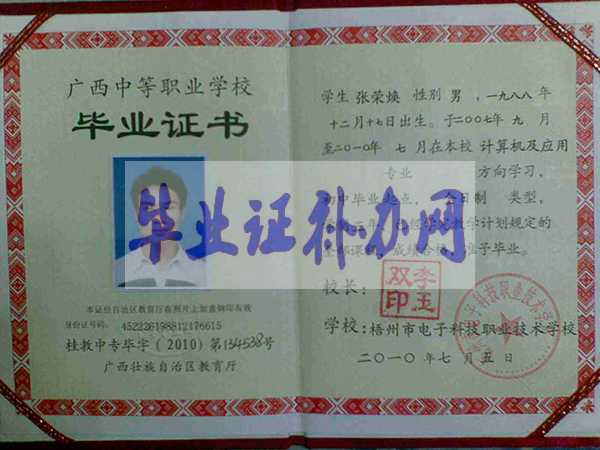 广西中等职业学校
毕业证书
本证经自治区教育厅在照片上加盖钢印有效
身份证号码: 452226198812176615
桂教中专毕字(2010)第134538号
广西壮族自治区教育厅
学生 张荣焕 性别 男 ,一九八八年
十二月十七日出生。于二00七年 九 月
至二0一0年 七月在本校 计算机及应用
专业 方向学习,
初中毕业起点, 全日制 类型,
学计划规定的
成绩合格,准予毕业。
校长:
李玉双印
学校: 梧州市电子科技职业技术学校
二0一0年 七月 五日
毕业证补办网